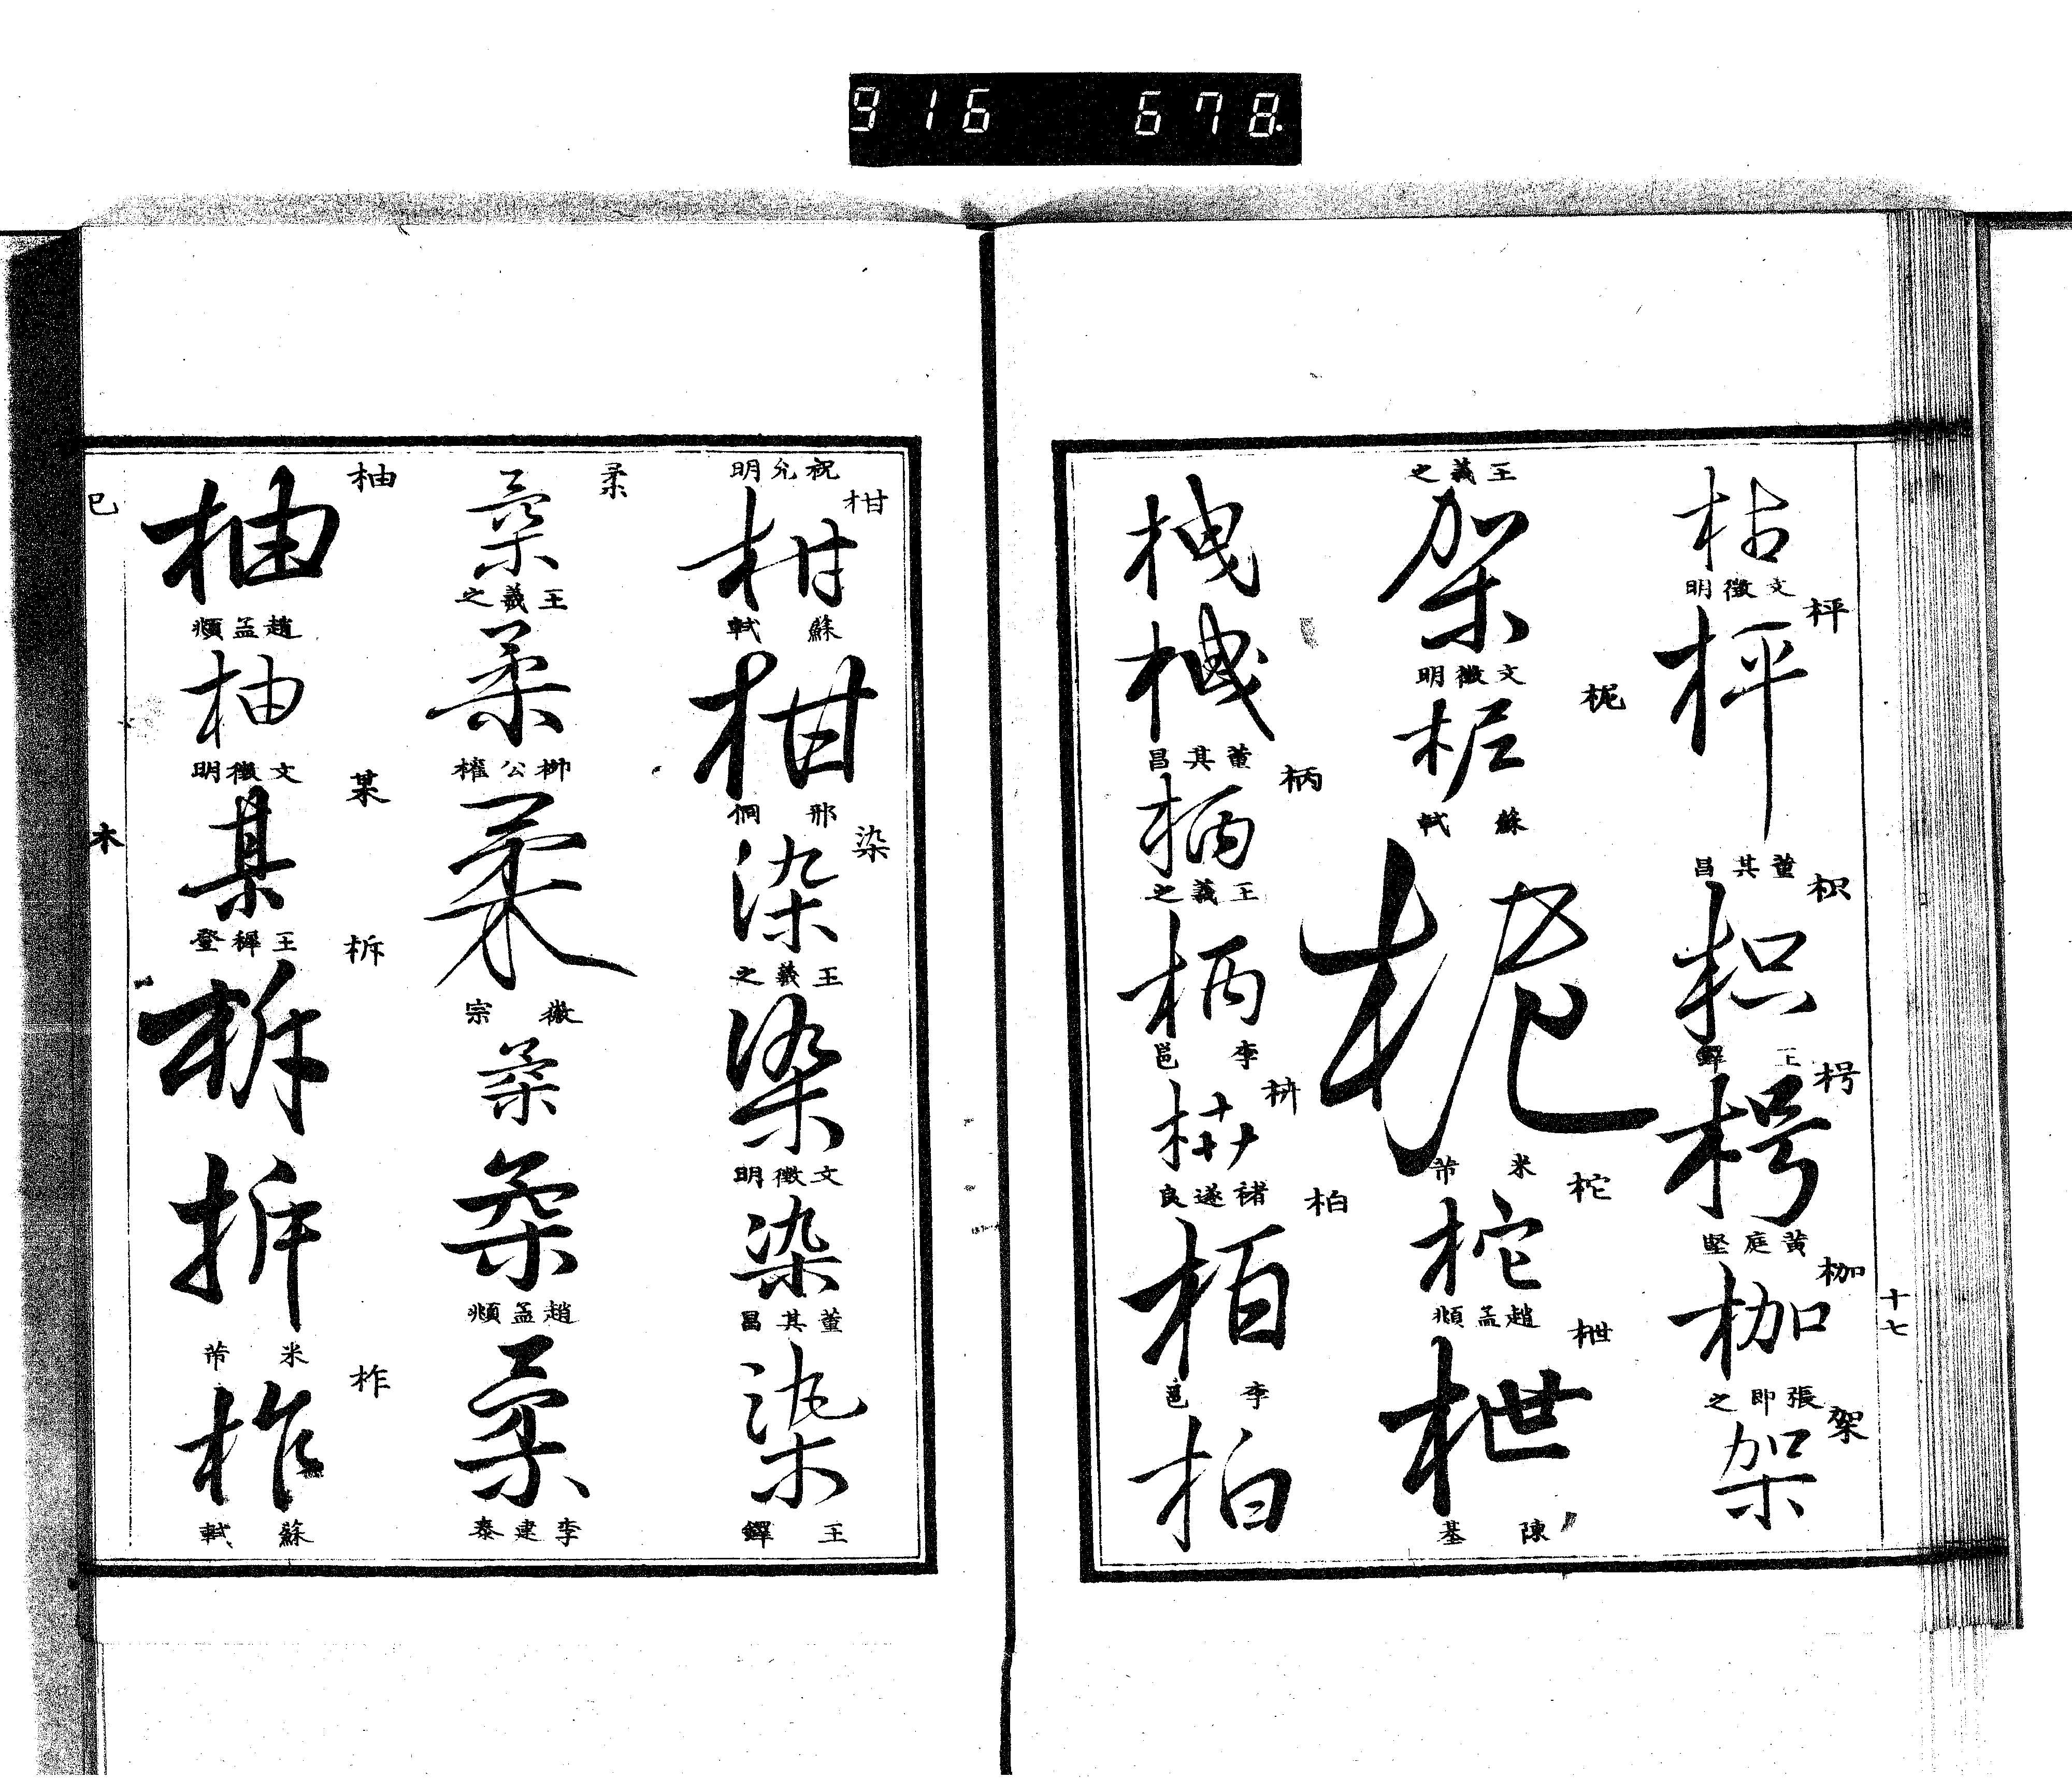 916 678.
枯
文徵明
枰
枰
董其昌
枳
枳
王鐸
枵
枵
黄庭堅
枷
枷
張即之
架
架
十七
王羲之
架
文徵明
柅
柅
蘇軾
柅
米芾
柁
柁
趙孟頫
枻
枻
陳基
董其昌
柄
柄
王羲之
柄
李邕
栟
褚遂良
柏
柏
李邕
柏
祝允明
柑
柑
蘇軾
柑
邢侗
染
染
王羲之
染
文徵明
染
董其昌
染
王鐸
柔
柔
王羲之
柔
柳公權
柔
徽宗
柔
柔
趙孟頫
柔
李建泰
柚
柚
趙孟頫
柚
文徵明
某
某
王穉登
柝
柝
柝
米芾
柞
柞
蘇軾
巳
木